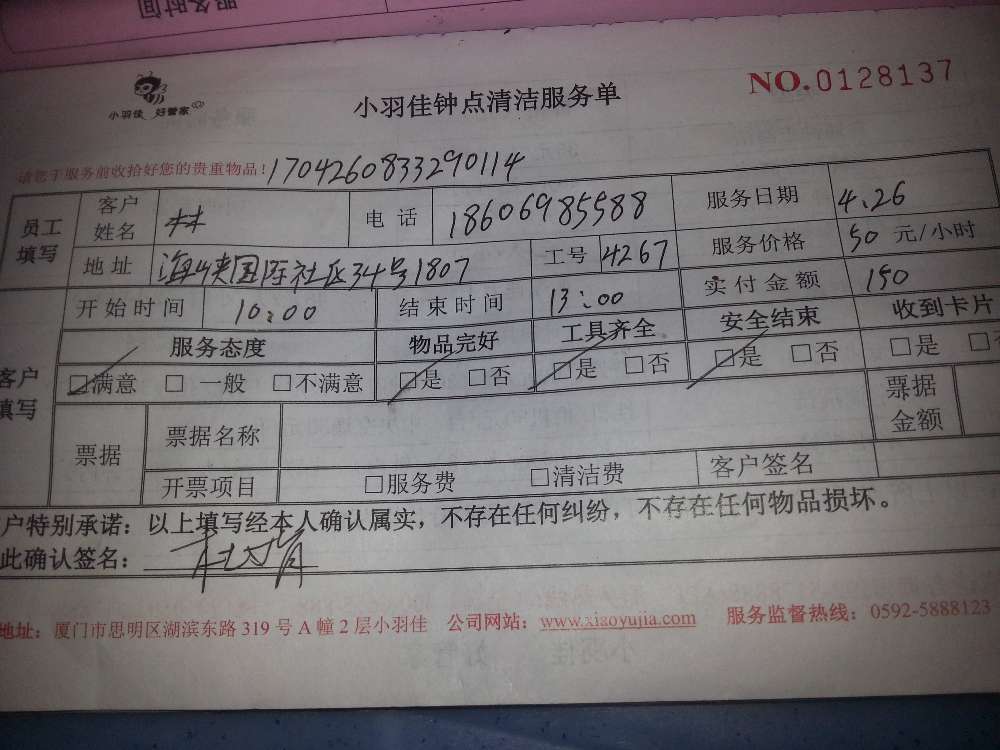 服务时间
小羽佳 好管家
小羽佳钟点清洁服务单
NO.0128137
请您于服务前收拾好您的贵重物品!
1704260833290114
员工填写 客户姓名 林 电话 18606985588 服务日期 4.26
地址 海峡国际社区34号1807 工号 4267 服务价格 50 元/小时
客户填写 开始时间 10:00 结束时间 13:00 实付金额 150
服务态度 物品完好 工具齐全 安全结束 收到卡片
□满意 □一般 □不满意 □是 □否 □是 □否 □是 □否 □是
票据 票据名称 票据金额
开票项目 □服务费 □清洁费 客户签名
户特别承诺:以上填写经本人确认属实,不存在任何纠纷,不存在任何物品损坏。
此确认签名:
地址:厦门市思明区湖滨东路 319 号 A 幢 2 层小羽佳 公司网站:www.xiaoyujia.com 服务监督热线:0592-5888123